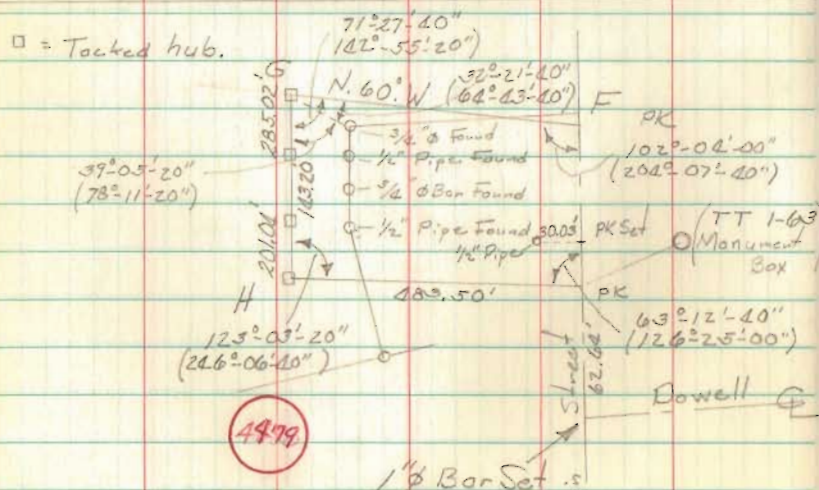 □ = Tacked hub.
71°-27'-40"
(142°-55'-20")
G
N. 60. W
32°-21'-40"
(64°-43'-40")
F
PK
102°-04'-00"
(204°-07'-40")
285.02'
3/4" Φ Found
1/2" Pipe Found
3/4" Φ Bar Found
1/2" Pipe Found
39°-05'-20"
(78°-11'-20")
143.20
201.04'
30.03'
1/2" Pipe
PK Set
(TT 1-63
Monument
Box
H
483.50'
PK
123°-03'-20"
(246°-06'-40")
63°-12'-40"
(126°-25'-00")
Street
62.64'
Dowell ℄
4479
1" Φ Bar Set